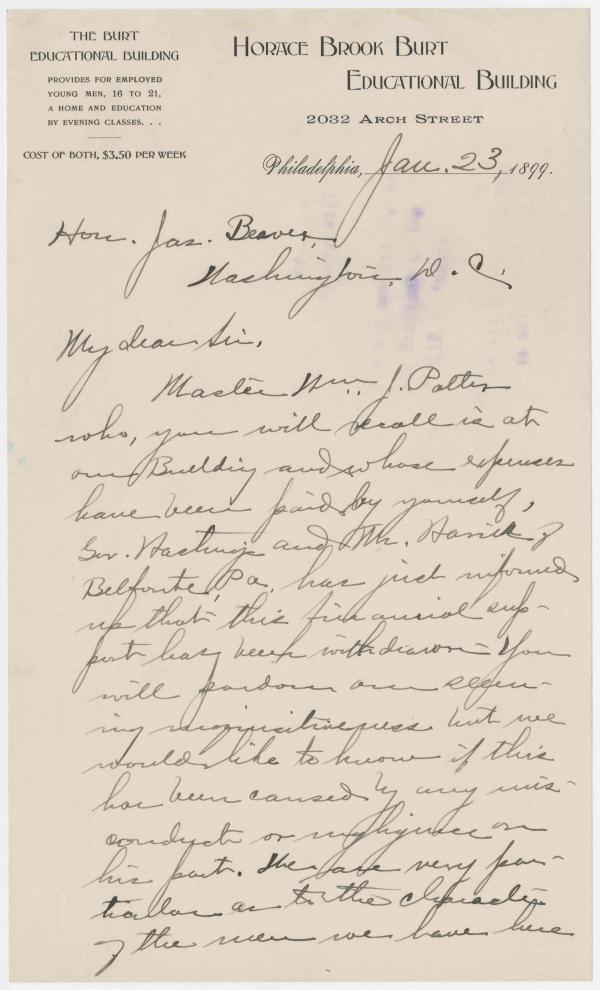 THE BURT
EDUCATIONAL BUILDING
PROVIDES FOR EMPLOYED
YOUNG MEN, 16 TO 21,
A HOME AND EDUCATION
BY EVENING CLASSES. . .
COST OF BOTH, $3.50 PER WEEK
HORACE BROOK BURT
EDUCATIONAL BUILDING
2032 ARCH STREET
Philadelphia, Jan. 23, 1899.
Hon. Jas. Beaver,
Washington, D. C.
My dear Sir,
Master Wm. J. Potter
who, you will recall is at
our Building and whose expenses
have been paid by yourself,
Gov. Hastings and Mr. of
Belfonte, Pa. has just informed
us that this financial sup-
port has been withdrawn - You
will pardon our seem-
ing inquisitiveness but we
would like to know if this
has been caused by any mis-
conduct or negligence on
his part. We are very par-
ticular as to the character
of the men we have here